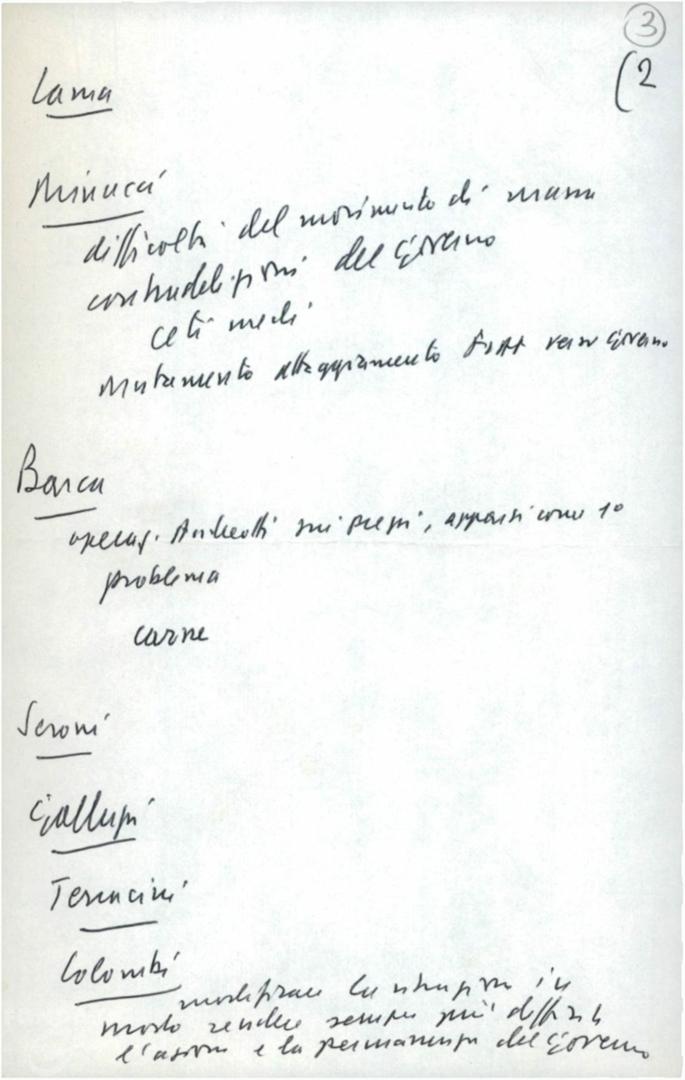 3
(2
Lama
Minucci
difficoltà del movimento di massa
contraddizioni del Governo
ceti medi
Mutamento atteggiamento verso Governo
Barca
operaz. Andreotti sui prezzi, apparsi come 1°
problema
carne
Seroni
Galluzzi
Terracini
Colombi
modificare la situazione in
modo rendere sempre più difficile
l'azione e la permanenza del Governo